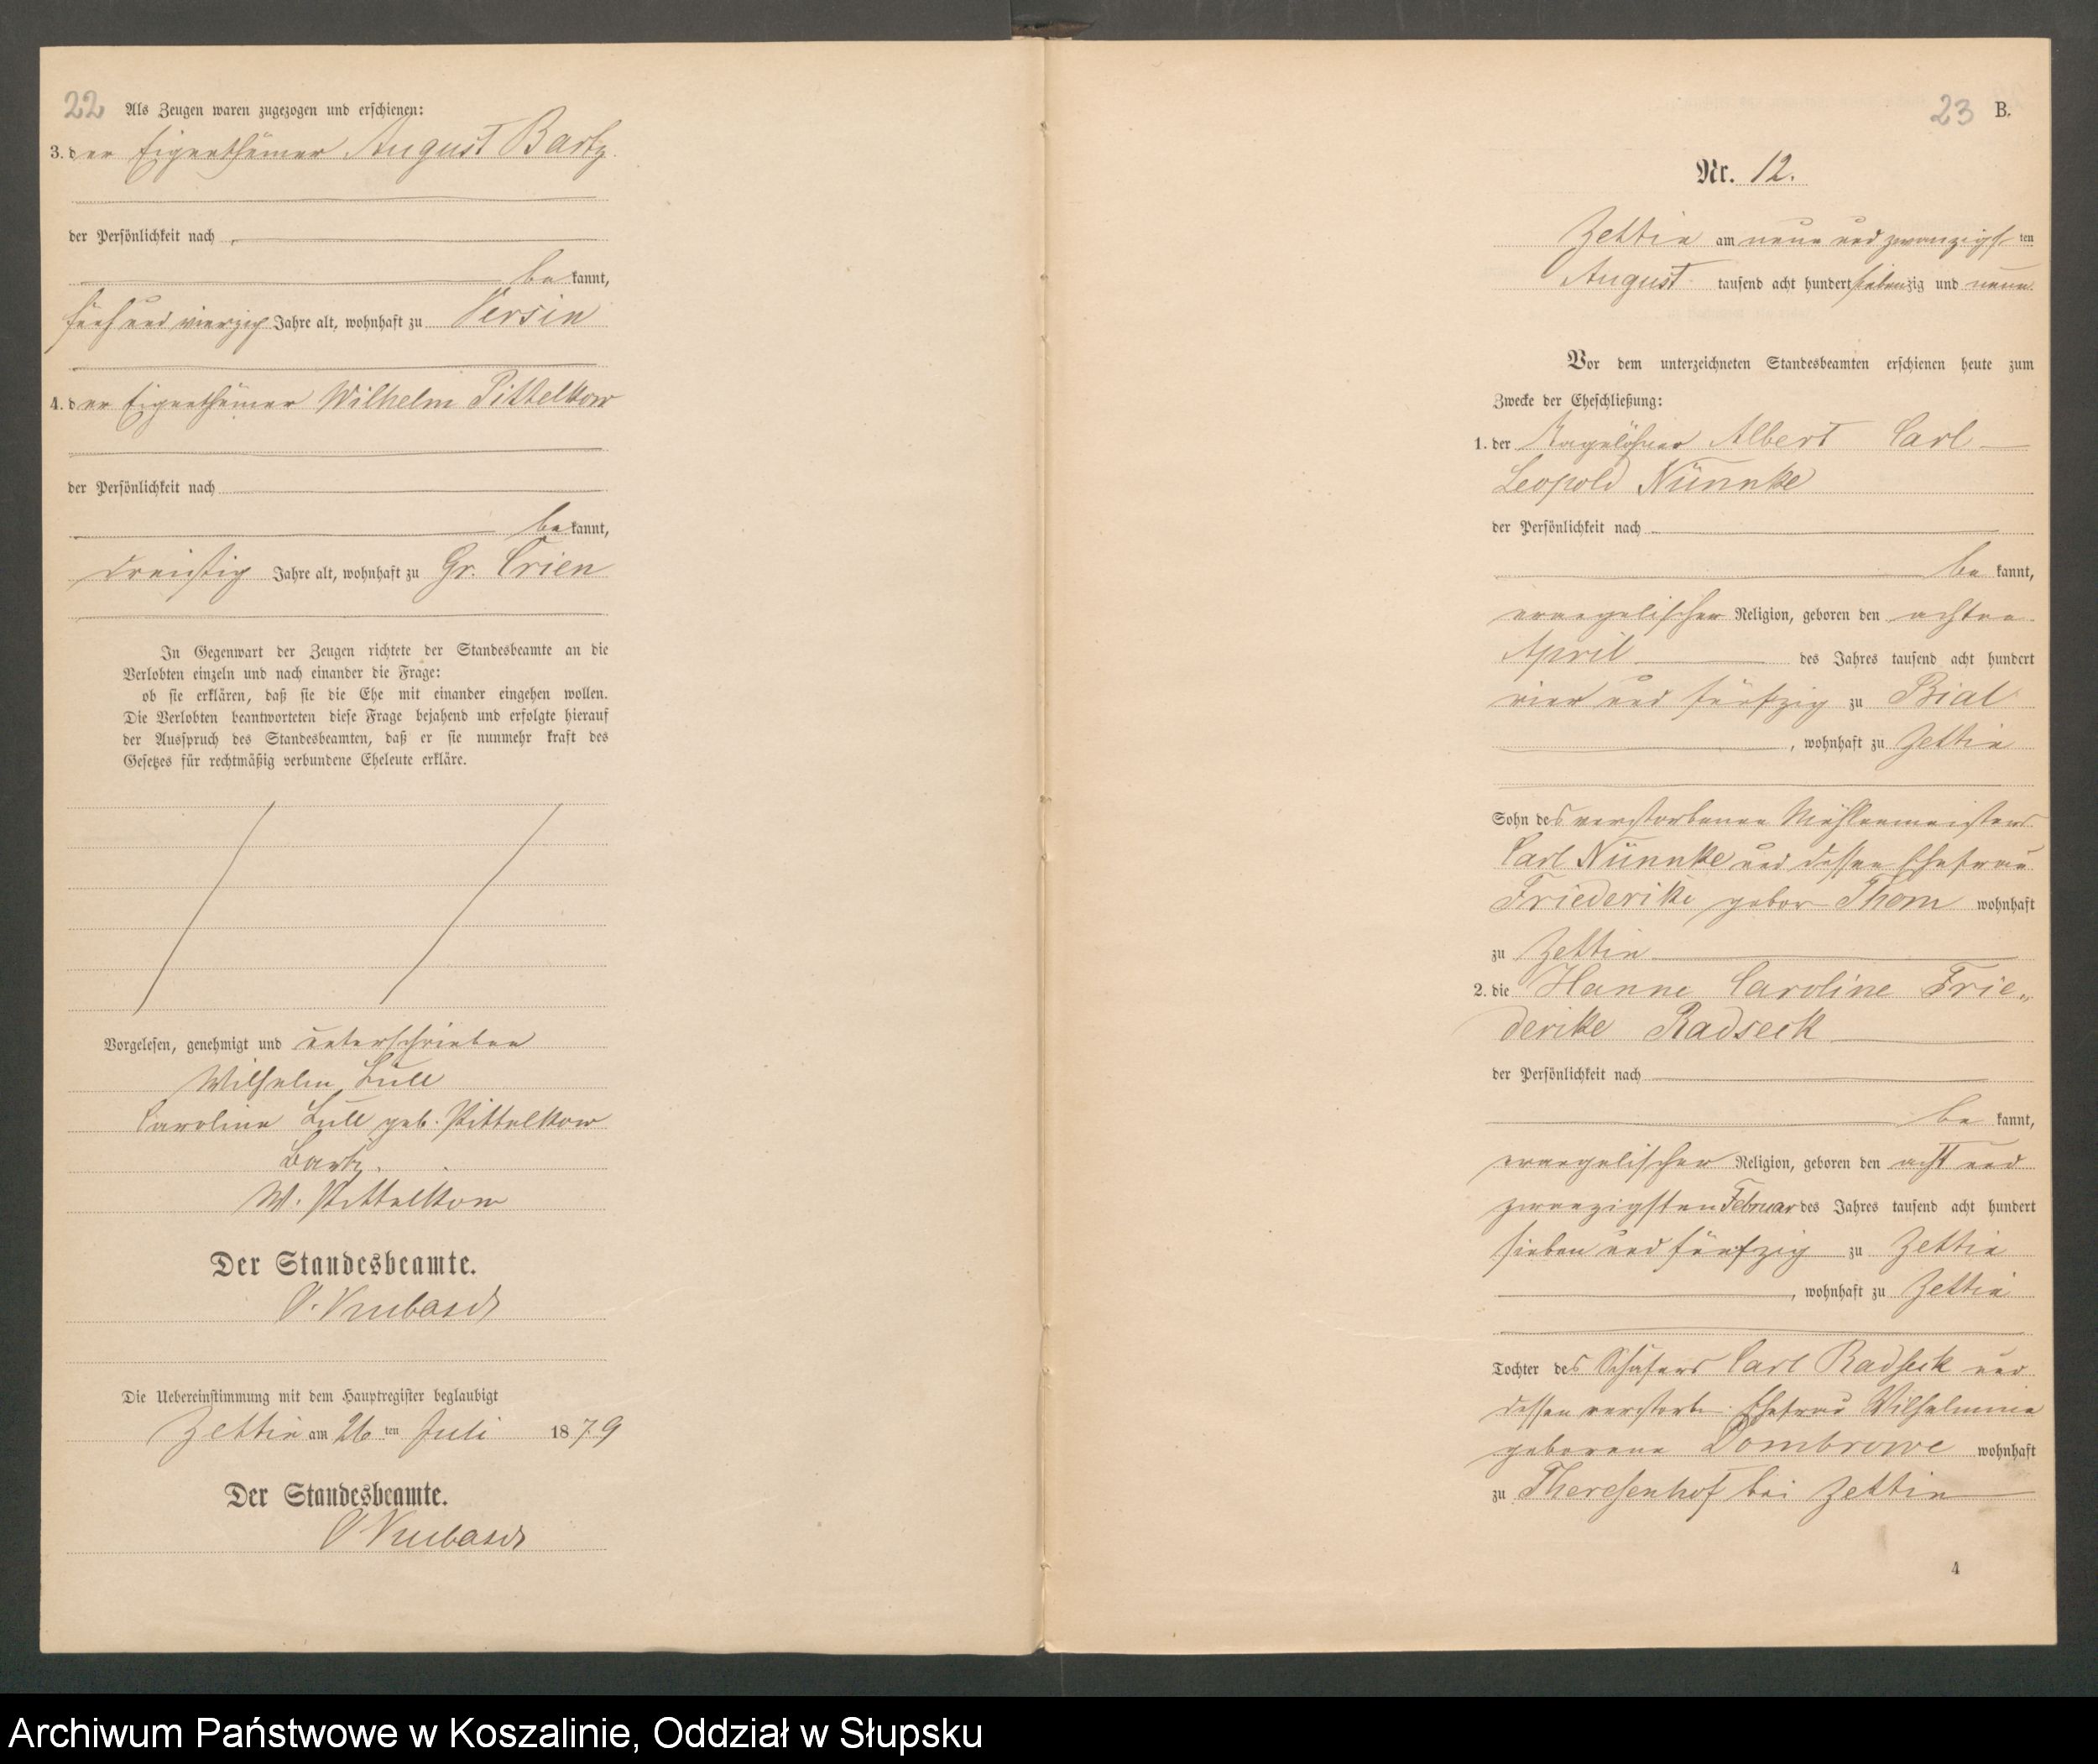 22 Als Zeugen waren zugezogen und erschienen:
3. der Eigenthümer August Bartz
der Persönlichkeit nach
be kannt,
fünf und vierzig Jahre alt, wohnhaft zu Versin
4. der Eigenthümer Wilhelm Pittelkow
der Persönlichkeit nach
be kannt,
dreißig Jahre alt, wohnhaft zu Gr. Crien
In Gegenwart der Zeugen richtete der Standesbeamte an die
Verlobten einzeln und nach einander die Frage:
ob sie erklären, daß sie die Ehe mit einander eingehen wollen.
Die Verlobten beantworteten diese Frage bejahend und erfolgte hierauf
der Ausspruch des Standesbeamten, daß er sie nunmehr kraft des
Gesetzes für rechtmäßig verbundene Eheleute erkläre.
Vorgelesen, genehmigt und unterschrieben
Wilhelm Lüll
Caroline Lüll geb. Pittelkow
Bartz.
W. Pittelkow
Der Standesbeamte.
Die Uebereinstimmung mit dem Hauptregister beglaubigt
Zettin am 26 ten Juli 1879
Der Standesbeamte.
23 B.
Nr. 12.
Zettin am neun und zwanzigs ten
August tausend acht hundert siebenzig und neun.
Vor dem unterzeichneten Standesbeamten erschienen heute zum
Zwecke der Eheschließung:
1. der Tagelöhner Albert Carl
Leopold Nünnke
der Persönlichkeit nach
be kannt,
evangelischer Religion, geboren den achten
April des Jahres tausend acht hundert
vier und fünfzig zu Bial
, wohnhaft zu Zettin
Sohn des verstorbenen Mühlenmeisters
Carl Nünnke und dessen Ehefrau
Friederike gebor Thom wohnhaft
zu Zettin
2. die Hanne Caroline Frie„
derike Radseck
der Persönlichkeit nach
be kannt,
evangelischer Religion, geboren den acht und
zwanzigsten Februar des Jahres tausend acht hundert
sieben und fünfzig zu Zettin
, wohnhaft zu Zettin
Tochter des Schäfers Carl Radseck und
dessen verstorb. Ehefrau Wilhelmine
geborene Dombrowe wohnhaft
zu Theresenhof bei Zettin
4
Archiwum Państwowe w Koszalinie, Oddział w Słupsku